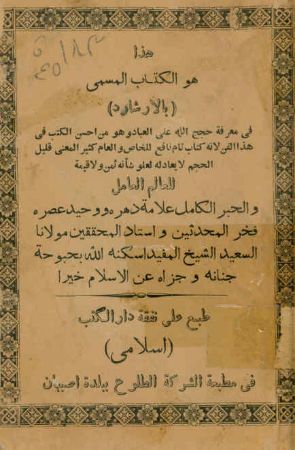 هذا
هو الكتاب المسمى
(بالارشاد)
فى معرفة حجج الله على العباد و هو من احسن الكتب فى
هذا الفن لانه كتاب تام نافع للخاص والعام كثير المعنى قليل
الحجم لا يعادله لعلو شأنه ثمن ولا قيمة
للعالم العامل
والحبر الكامل علامة دهره ووحيد عصره
فخر المحدثين و استاد المحققين مولانا
السعيد الشيخ المفيد اسكنه الله بحبوحة
جنانه و جزاه عن الاسلام خيرا
طبع على نفقة دار الكتب
(اسلامى)
فى مطبعة الشركة الطلوع ببلدة اصبهان